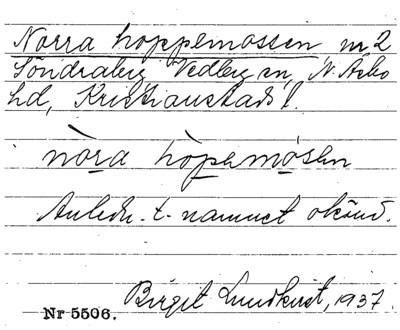 Norra hoppemossen nr 2
Söndraby Vedby sn, N. Åsbo
hd, Kristianstads l.
nòra hòpemósen
Anledn. t. namnet okänd.
Birgit Lundkvist, 1937.
Nr 5506.